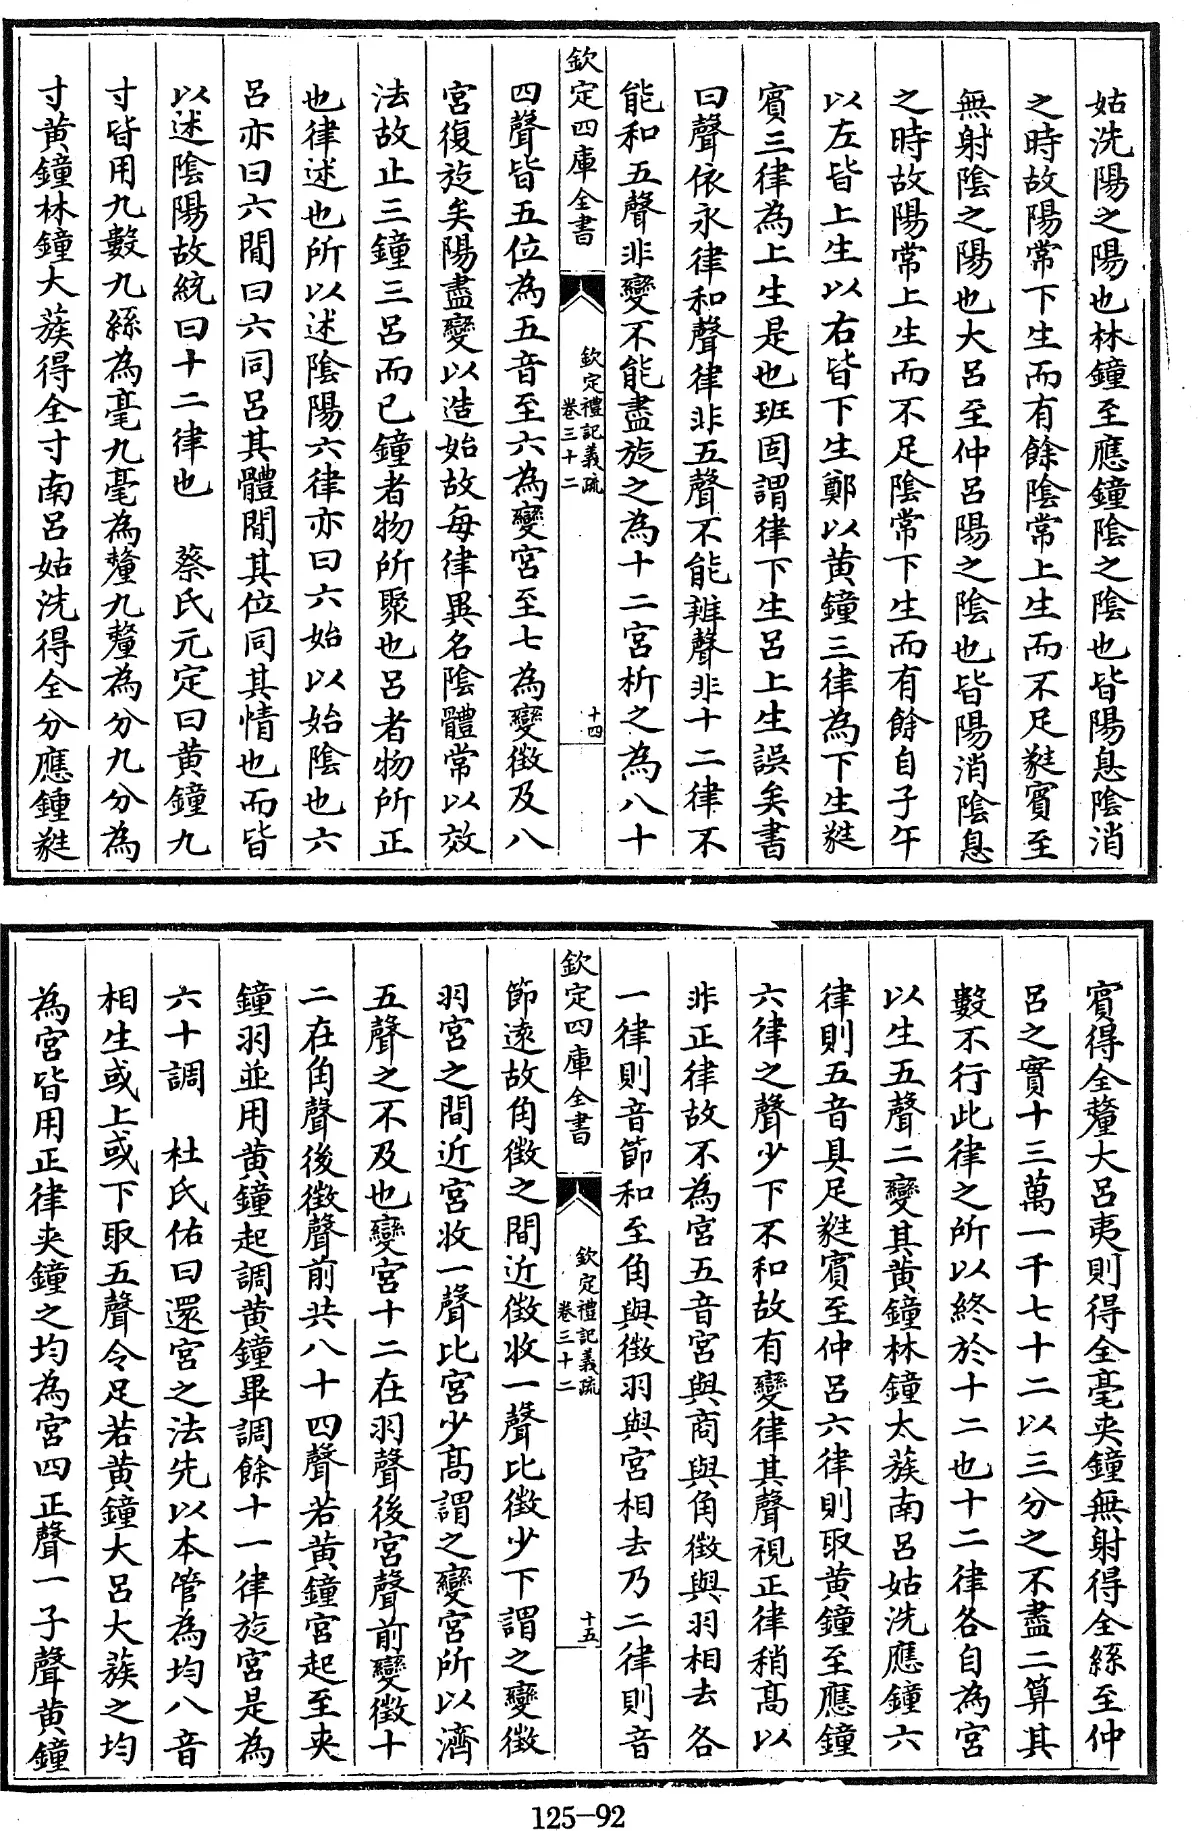 姑洗陽之陽也林鐘至應鐘陰之陰也皆陽息陰消
之時故陽常下生而有餘陰常上生而不足蕤賓至
無射陰之陽也大呂至仲呂陽之陰也皆陽消陰息
之時故陽常上生而不足陰常下生而有餘自子午
以左皆上生以右皆下生鄭以黃鐘三律為下生蕤
賓三律為上生是也班固謂律下生呂上生誤矣書
曰聲依永律和聲律非五聲不能辨聲非十二律不
能和五聲非變不能盡旋之為十二宮析之為八十
欽定四庫全書
欽定禮記義疏
卷三十二
十四
四聲皆五位為五音至六為變宮至七為變徵及八
宮復旋矣陽盡變以造始故每律異名陰體常以效
法故止三鐘三呂而已鐘者物所聚也呂者物所正
也律述也所以述陰陽六律亦曰六始以始陰也六
呂亦曰六間曰六同呂其體間其位同其情也而皆
以述陰陽故統曰十二律也 蔡氏元定曰黃鐘九
寸皆用九數九絲為毫九毫為釐九釐為分九分為
寸黃鐘林鐘大蔟得全寸南呂姑洗得全分應鍾蕤
賓得全釐大呂夷則得全毫夾鐘無射得全絲至仲
呂之實十三萬一千七十二以三分之不盡二算其
數不行此律之所以終於十二也十二律各自為宮
以生五聲二變其黃鐘林鐘太蔟南呂姑洗應鐘六
律則五音具足蕤賓至仲呂六律則取黃鐘至應鐘
六律之聲少下不和故有變律其聲視正律稍高以
非正律故不為宮五音宮與商與角徵與羽相去各
一律則音節和至角與徵羽與宮相去乃二律則音
欽定四庫全書
欽定禮記義疏
卷三十二
十五
節遠故角徵之間近徵收一聲比徵少下謂之變徵
羽宮之間近宮收一聲比宮少高謂之變宮所以濟
五聲之不及也變宮十二在羽聲後宮聲前變徵十
二在角聲後徵聲前共八十四聲若黃鐘宮起至夾
鐘羽並用黃鐘起調黃鐘畢調餘十一律旋宮是為
六十調 杜氏佑曰還宮之法先以本管為均八音
相生或上或下取五聲令足若黃鐘大呂大蔟之均
為宮皆用正律夾鐘之均為宮四正聲一子聲黃鐘
125-92